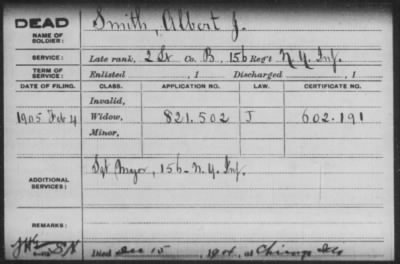 DEAD
NAME OF SOLDIER: Smith, Albert J.
SERVICE: Late rank, 2 Lt Co. B, 156 Reg't N.Y. Inf.
TERM OF SERVICE: Enlisted , 1 Discharged , 1
DATE OF FILING. CLASS. APPLICATION NO. LAW. CERTIFICATE NO.
Invalid,
1905 Feb 4 Widow, 821.502 J 602.191
Minor,
ADDITIONAL SERVICES: Sgt Major, 156- N.Y. Inf.
REMARKS:
Died Dec 15, 1904, at Chicago Ills